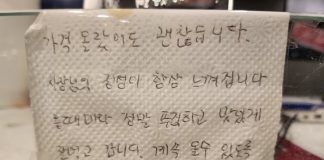 가격 올랐어도 괜찮습니다.
사장님의 진심이 항상 느껴집니다
올때마다 정말 푸짐하고 맛있게
먹고 갑니다. 계속 올수 있도록